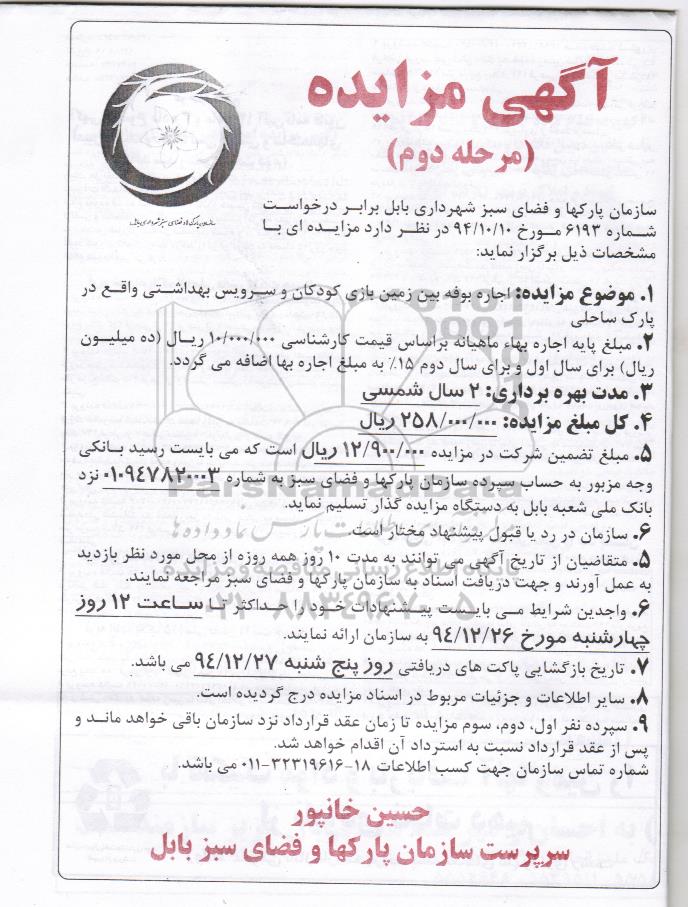 آگهی مزایده
(مرحله دوم)
سازمان پارکها و فضای سبز شهرداری بابل
سازمان پارکها و فضای سبز شهرداری بابل برابر درخواست
شماره ۶۱۹۳ مورخ ۹۴/۱۰/۱۰ در نظر دارد مزایده ای با
مشخصات ذیل برگزار نماید:
۱. موضوع مزایده: اجاره بوفه بین زمین بازی کودکان و سرویس بهداشتی واقع در
پارک ساحلی
۲. مبلغ پایه اجاره بهاء ماهیانه براساس قیمت کارشناسی ۱۰/۰۰۰/۰۰۰ ریال (ده میلیون
ریال) برای سال اول و برای سال دوم ۱۵٪ به مبلغ اجاره بها اضافه می گردد.
۳. مدت بهره برداری: ۲ سال شمسی
۴. کل مبلغ مزایده: ۲۵۸/۰۰۰/۰۰۰ ریال
۵. مبلغ تضمین شرکت در مزایده ۱۲/۹۰۰/۰۰۰ ریال است که می بایست رسید بانکی
وجه مزبور به حساب سپرده سازمان پارکها و فضای سبز به شماره ۰۱۰۹۴۷۸۲۰۰۰۳ نزد
بانک ملی شعبه بابل به دستگاه مزایده گذار تسلیم نماید.
ParsNamadData
۶. سازمان در رد یا قبول پیشنهاد مختار است.
۵. متقاضیان از تاریخ آگهی می توانند به مدت ۱۰ روز همه روزه از محل مورد نظر بازدید
به عمل آورند و جهت دریافت اسناد به سازمان پارکها و فضای سبز مراجعه نمایند.
۶. واجدین شرایط می بایست پیشنهادات خود را حداکثر تا ساعت ۱۲ روز
چهارشنبه مورخ ۹۴/۱۲/۲۶ به سازمان ارائه نمایند.
۷. تاریخ بازگشایی پاکت های دریافتی روز پنج شنبه ۹۴/۱۲/۲۷ می باشد.
۸. سایر اطلاعات و جزئیات مربوط در اسناد مزایده درج گردیده است.
۹. سپرده نفر اول، دوم، سوم مزایده تا زمان عقد قرارداد نزد سازمان باقی خواهد ماند و
پس از عقد قرارداد نسبت به استرداد آن اقدام خواهد شد.
شماره تماس سازمان جهت کسب اطلاعات ۱۸-۳۲۳۱۹۶۱۶-۰۱۱ می باشد.
حسین خانپور
سرپرست سازمان پارکها و فضای سبز بابل